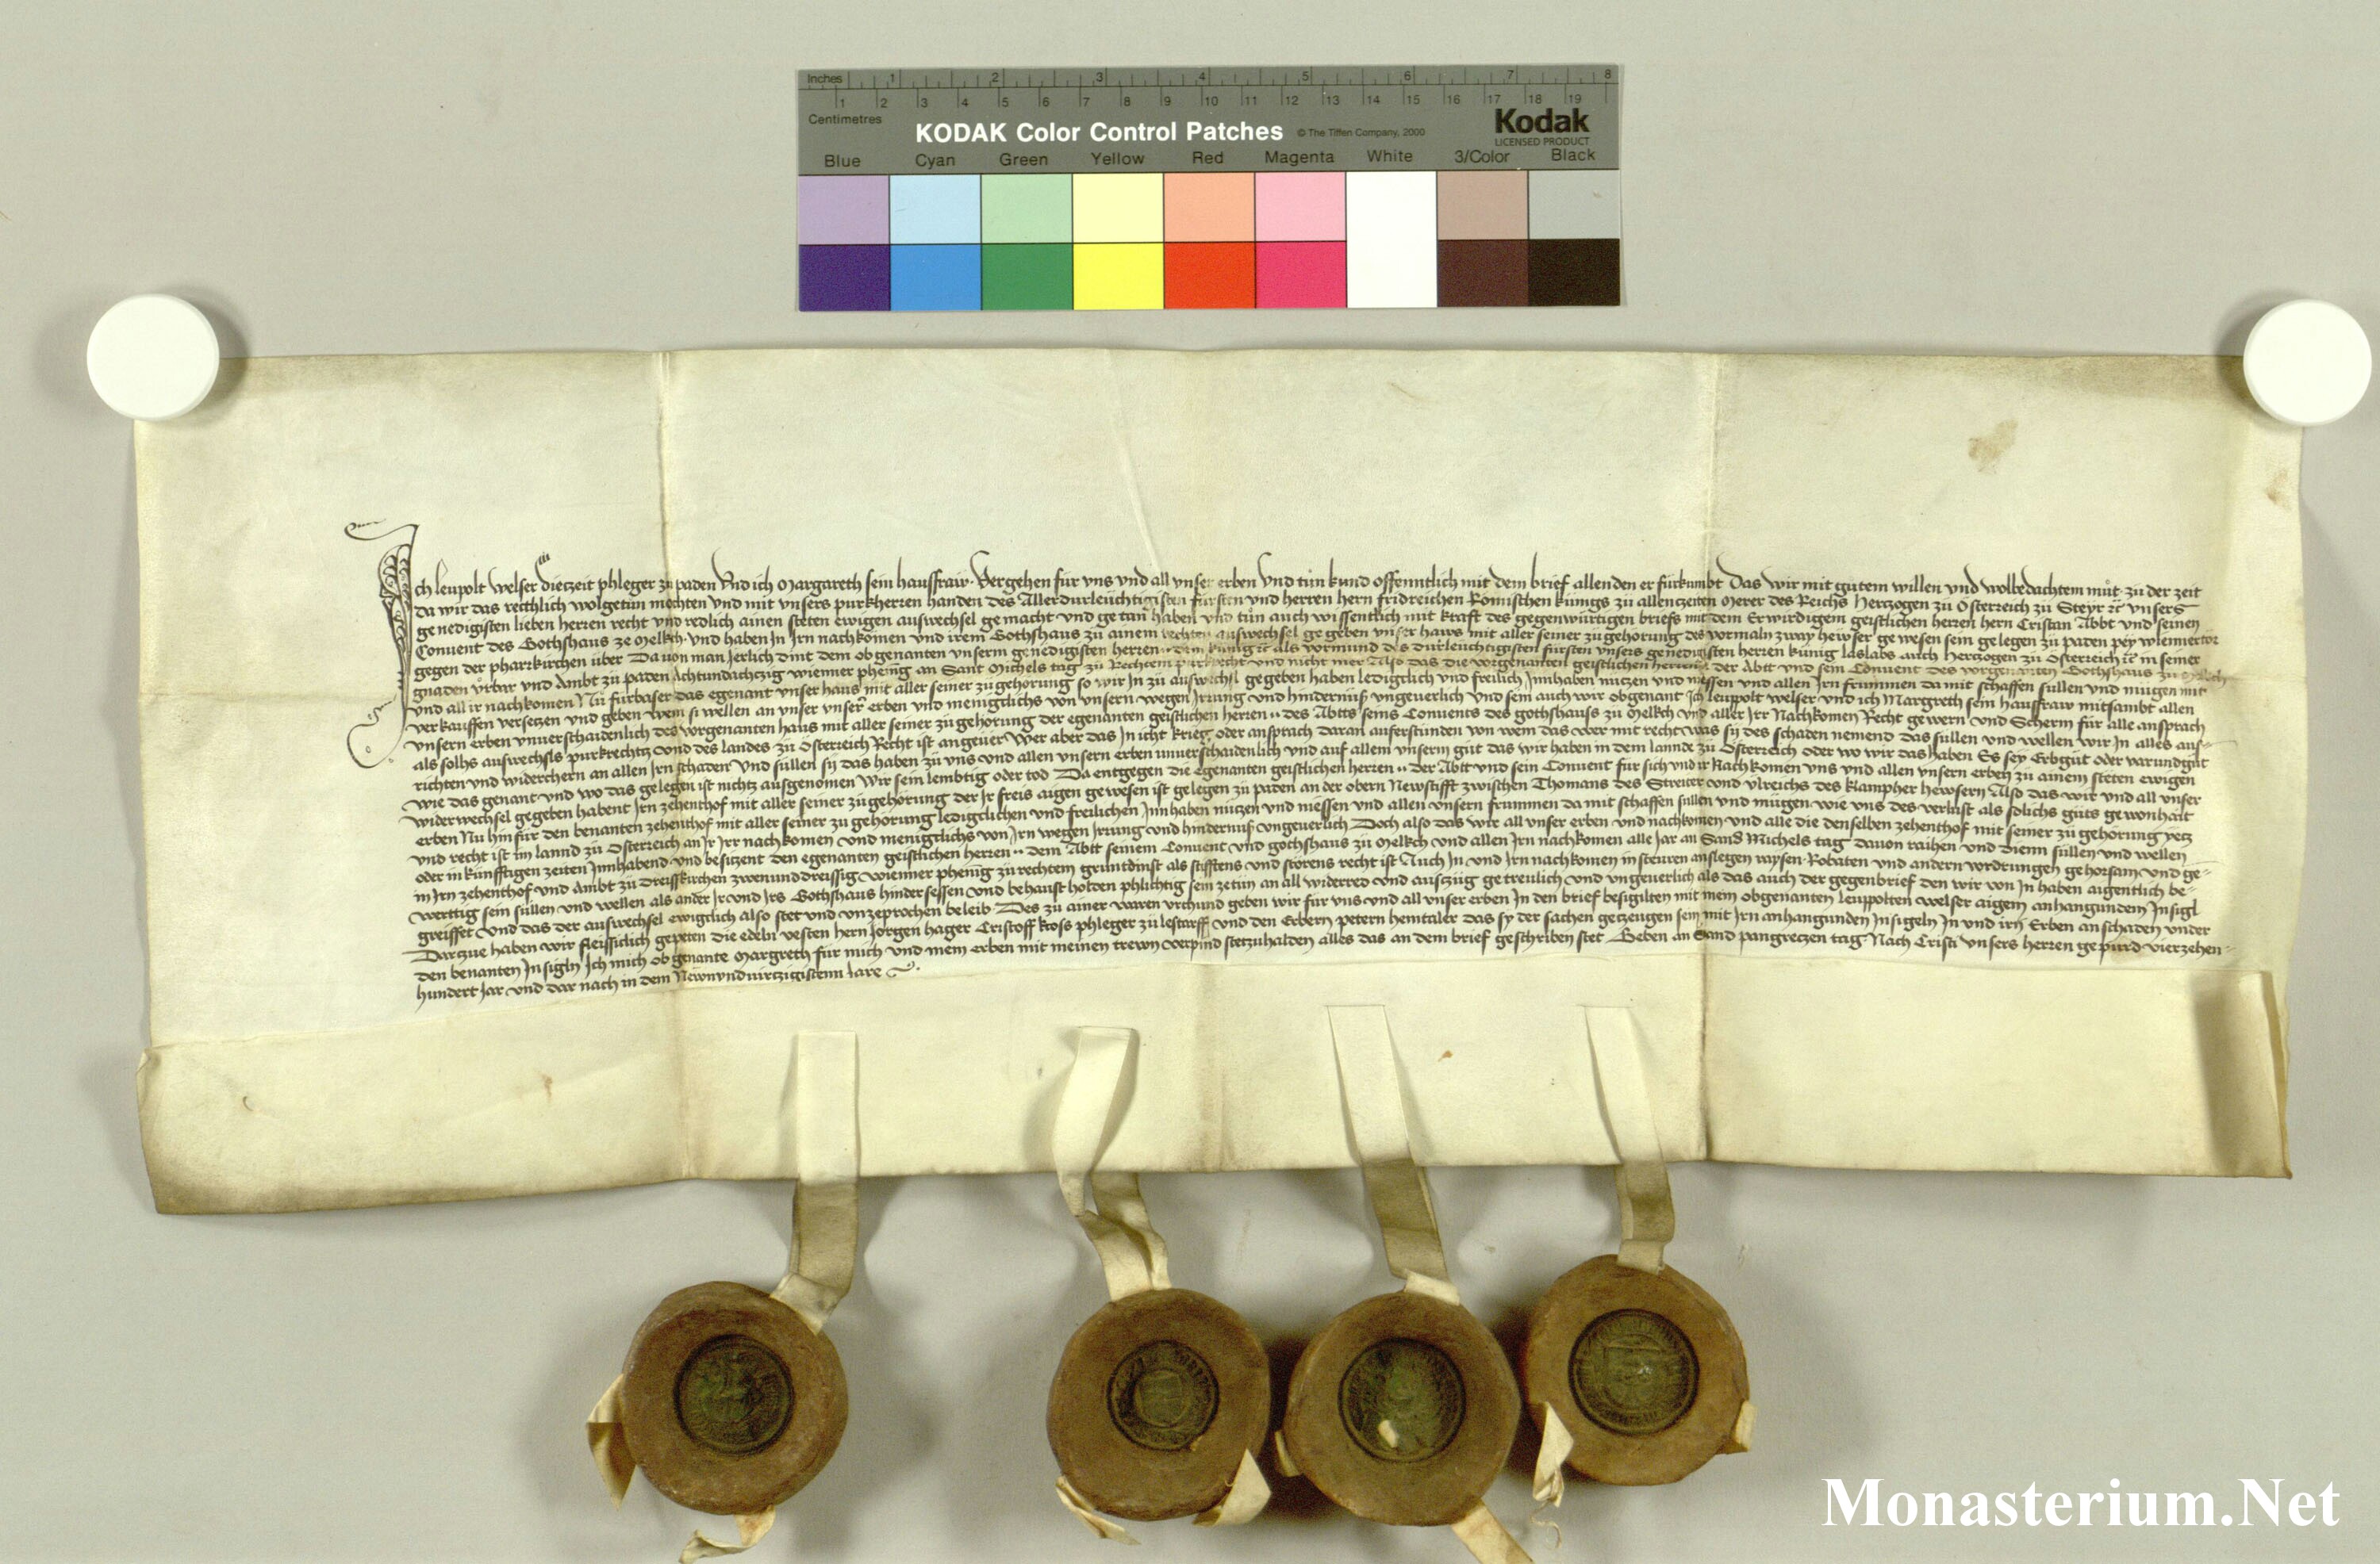 Inches 1 2 3 4 5 6 7 8
1 2 3 4 5 6 7 8 9 10 11 12 13 14 15 16 17 18 19
Centimetres
KODAK Color Control Patches © The Tiffen Company, 2000 Kodak
LICENSED PRODUCT
Blue Cyan Green Yellow Red Magenta White 3/Color Black
Ich leupolt welser diezeit phleger zu paden Vnd ich Margareth sein hausfraw. Vergehen für vns vnd all vnser erben Vnd tun kund offenntlich mit dem brief allen den er fürkumbt Das wir mit gutem willen vnd wolbedachtem mut zu der zeit
da wir das rechtlich wolgetun mochten vnd mit vnsers purkherren handen des Allerdurleuchtigisten fursten vnd herren hern fridreichen Romischen kunigs zu allenczeiten Merer des Reichs Herczogen zu Osterreich zu Steyr etc vnsers
genedigisten lieben herren recht vnd redlich ainen steten ewigen auswechsel gemacht vnd getan haben vnd tun auch wissentlich mit kraft des gegenwurtigen briefs mit dem Erwirdigem geistlichen herren hern Cristan Abbt vnd seinen
Conuent des Gotshaus ze Melkch. vnd haben In Irn nachkomen vnd irem Gotshaus zu ainem rechten auswechsel gegeben vnser haws mit aller seiner zugehorung des vormaln zway hewser gewesen sein gelegen zu paden pey wiennertor
gegen der pharrkirchen über Dauon man Jerlich dint dem obgenanten vnserm genedigisten herren dem kunig etc als vormund des durleuchtigisten fursten vnsers genedigisten herren kunig laslabs auch Herczogen zu Osterreich etc in seiner
gnaden vrbar vnd Ambt zu paden Achtundachczig wienner phening an Sant Michels tag zu Rechtem purkrecht vnd nicht mer Also das die vorgenanten geistlichen herren der Abtt vnd sein Conuent des vorgenanten Gotshaus zu Melkch
vnd all ir nachkomen Nu fürbaser das egenant vnser haus mit aller seiner zugehorung so wir In zu auswechsl gegeben haben ledigclich vnd freilich Innhaben nuczen vnd niessen vnd allen Irn frummen da mit schaffen sullen vnd mugen mit
verkauffen verseczen vnd geben wem si wellen an vnser vnser erben vnd menigclichs von vnsern wegen Irrung vnd hindernuss vngeuerlich Vnd sein auch wir obgenant Ich leupolt welser vnd ich Margreth sein hausfraw mitsambt allen
vnsern erben vnuerschaidenlich des vorgenanten haus mit aller seiner zugehorung der egenanten geistlichen herren des Abtts seins Conuents des gotshauss zu Melkch vnd aller Irr Nachkomen Recht gewern vnd Scherm für alle ansprach
als solhs auswechsls purkrechtz vnd des landes zu Osterreich Recht ist angeuer Wer aber das In icht krieg oder ansprach daran auferstunden von wem das wer mit recht was sy des schaden nemend das sullen vnd wellen wir In alles aus-
richten vnd widerchern an allen Irn schaden Vnd sullen sy das haben zu vns vnd allen vnsern erben vnuerschaidenlich vnd auf allem vnserm gut das wir haben in dem lannde zu Osterreich oder wo wir das haben Es sey Erbgut oder varundgut
wie das genant vnd wo das gelegen ist nichtz ausgenomen Wir sein lembtig oder tod Da entgegen die egenanten geistlichen herren der Abtt vnd sein Conuent für sich vnd ir Nachkomen vns vnd allen vnsern erben zu ainem steten ewigen
widerwechsel gegeben habent Irn zehenthof mit aller seiner zugehorung der Ir freis aigen gewesen ist gelegen zu paden an der obern Newstifft zwischen Thomans des Streiter vnd vlreichs des klampher hewsern Also das wir vnd all vnser
erben Nu hinfür den benanten zehenthof mit aller seiner zugehorung ledigclichen vnd freilichen Innhaben nuczen vnd niessen vnd allen vnsern frummen da mit schaffen sullen vnd mugen wie vns des verlust als solichs guts gewonhait
vnd recht ist im lannd zu Osterreich an Ir Irr nachkomen vnd menigclichs von Irn wegen Irrung vnd hindernuss vngeuerlich Doch also das wir all vnser erben vnd nachkomen vnd alle die denselben zehenthof mit seiner zugehorung yecz
oder in kunfftigen zeiten Innhabend vnd besiczent den egenanten geistlichen herren dem Abtt seinem Conuent vnd gotshaus zu Melkch vnd allen Irn nachkomen alle Jar an Sand Michels tag dauon raihen vnd dienn sullen vnd wellen
in Irn zehenthof vnd Ambt zu dreisskirchen zwenunddreissig wienner phenig zu rechtem gruntdinst als stifftens vnd storens recht ist Auch In vnd Irn nachkomen in steuren anslegen raysen Robaten vnd andern vordrungen gehorsam vnd ge-
werttig sein sullen vnd wellen als ander Ir vnd Irs Gotshaus hindersessen vnd behaust holden phlichtig sein zetun an all widerred vnd auszug getreulich vnd vngeuerlich als das auch der gegenbrief den wir von In haben aigentlich be-
greiffet Vnd das der auswechsel ewigclich also stet vnd vnzeprochen beleib Des zu ainer waren vrchund geben wir für vns vnd all vnser erben In den brief besigilten mit mein obgenanten leuppolten welser aigem anhangundem Insigl
Darczue haben wir fleissiclich gepeten die edeln vesten hern Jorgen hager Cristoff kross phleger zu lestarff vnd den Erbern petern hemtaler das sy der sachen geczeugen sein mit Irn anhangunden Insigeln In vnd irn Erben an schaden vnder
den benanten Insigln Ich mich obgenante Margreth für mich vnd mein erben mit meinen trewn verpind stetzuhalden alles das an dem brief geschriben stet Geben an Sand pangreczen tag Nach Cristi vnsers herren gepurd vierzehen-
hundert Jar vnd dar nach in dem Newnvndvirtzigistenn Jare
Monasterium.Net